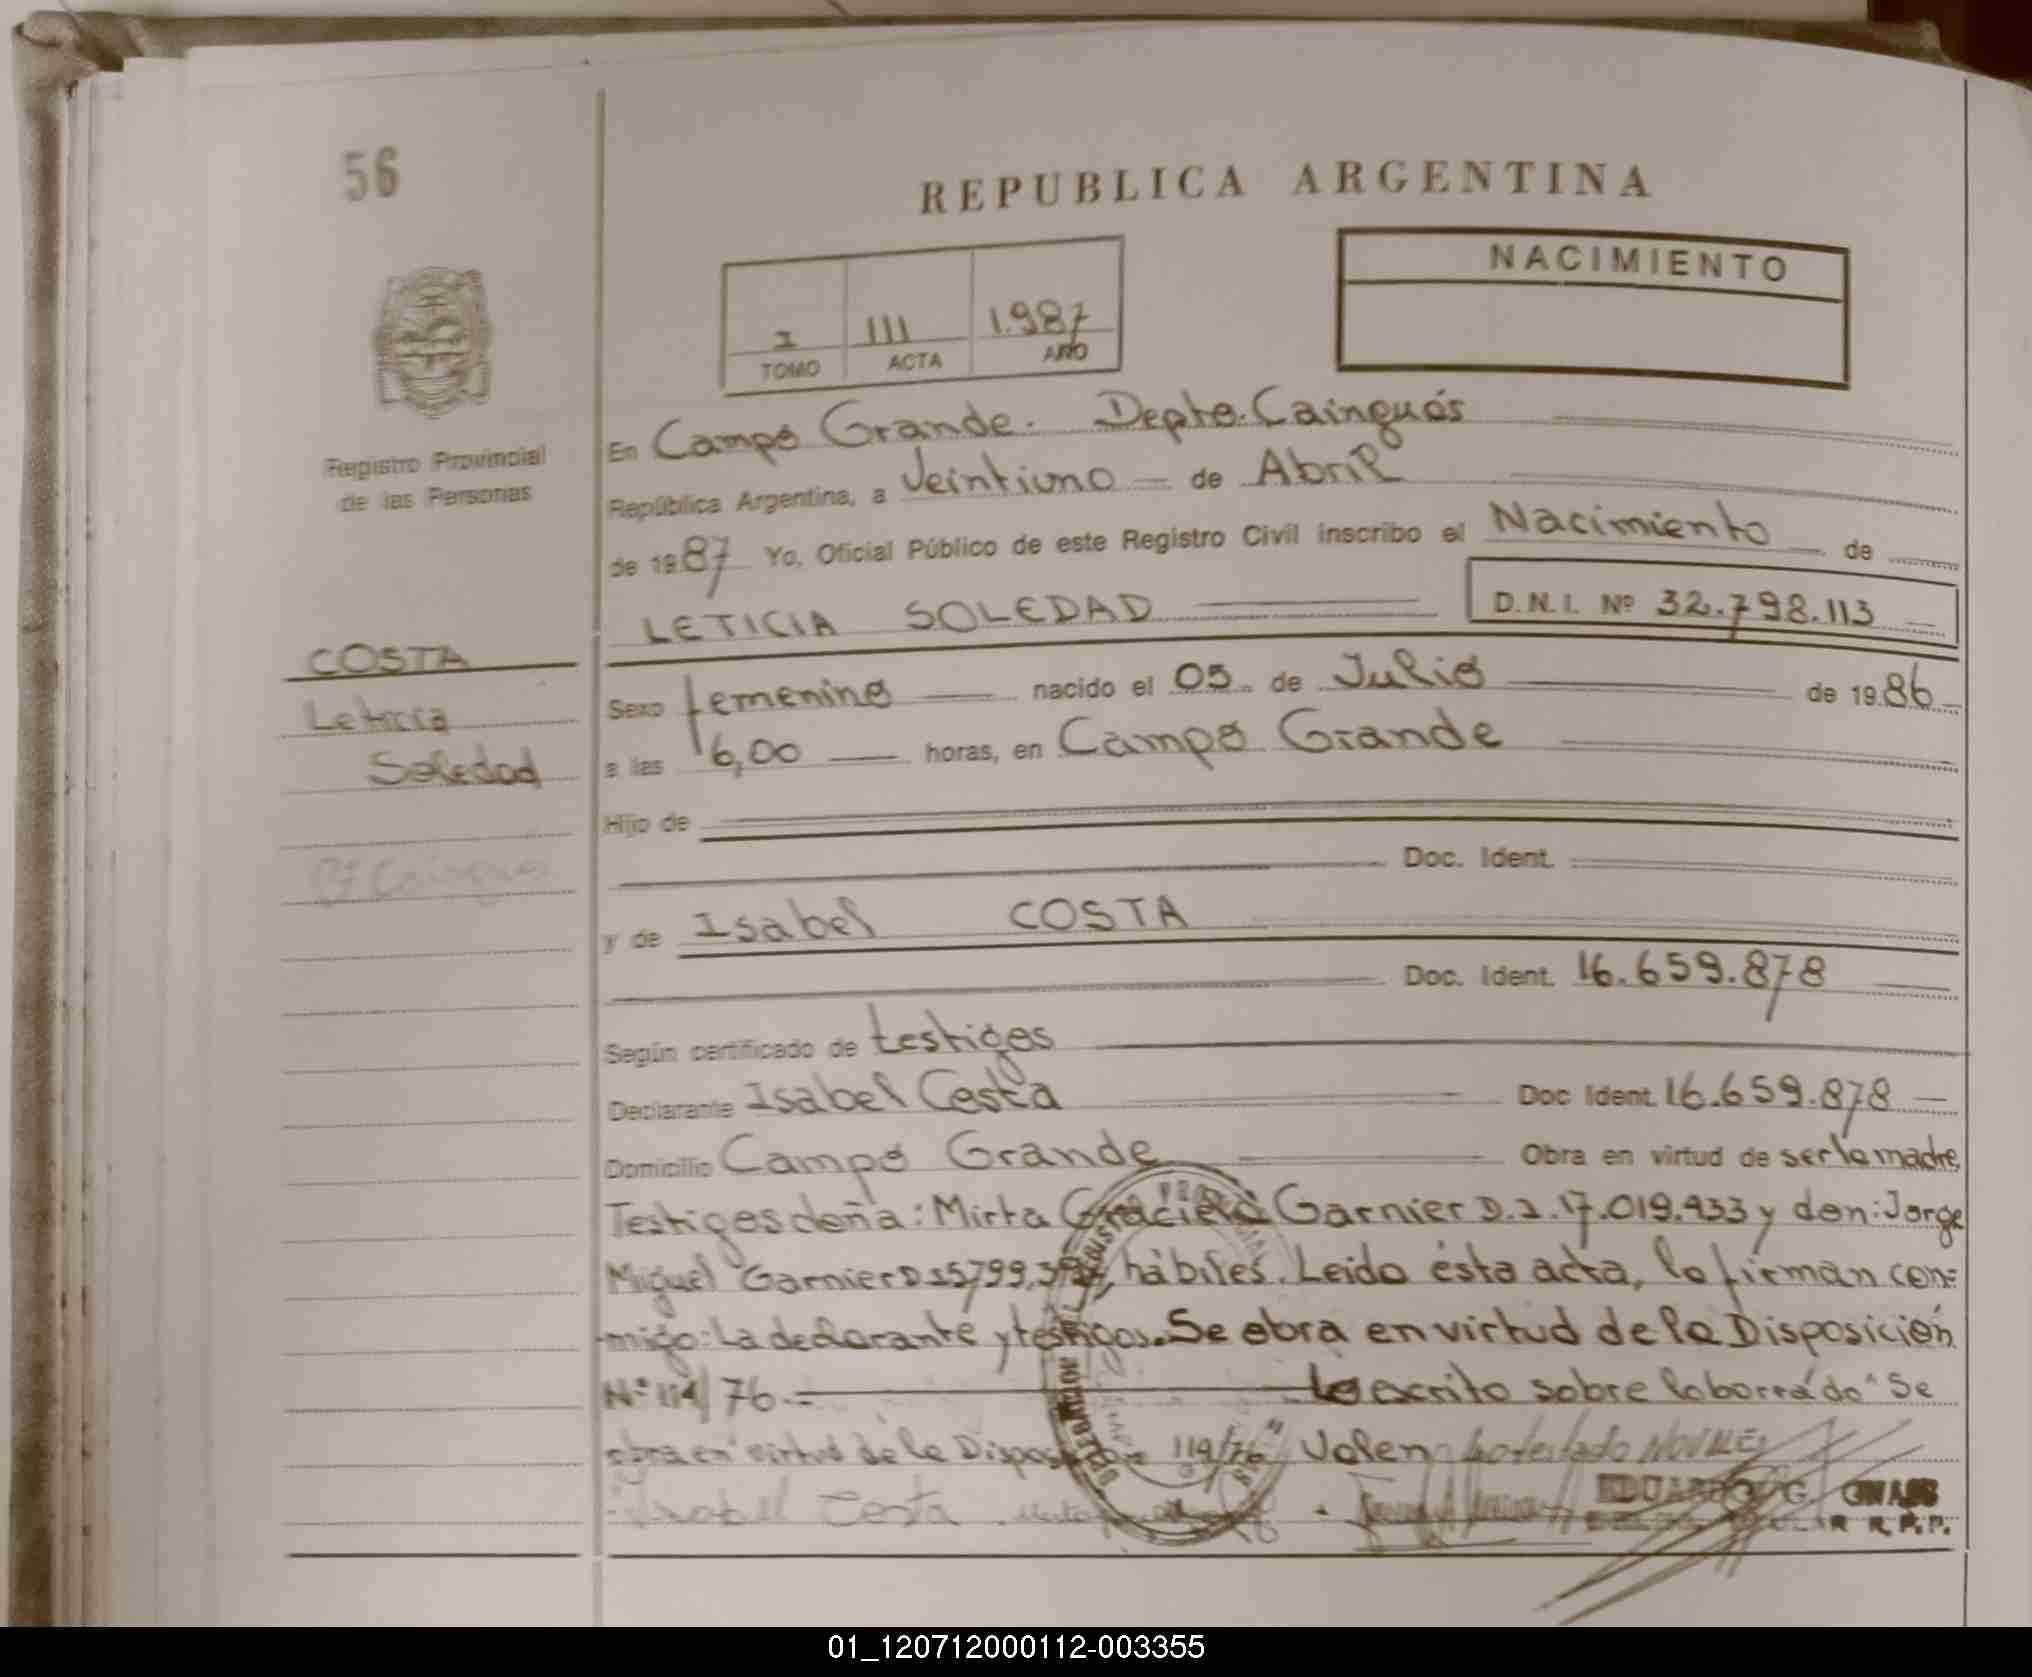 56
REPUBLICA ARGENTINA
NACIMIENTO
I III 1.987
TOMO ACTA AÑO
Registro Provincial
de las Personas
En Campo Grande. Depto. Cainguás
República Argentina, a Veintiuno de Abril
de 1987 Yo, Oficial Público de este Registro Civil inscribo el Nacimiento de
LETICIA SOLEDAD D.N.I. Nº 32.798.113
COSTA
Leticia
Soledad
Sexo femenino nacido el 05 de Julio de 1986
a las 16,00 horas, en Campo Grande
Hijo de
Doc. Ident.
y de Isabel COSTA
Doc. Ident. 16.659.878
Según certificado de testigos
Declarante Isabel Costa Doc Ident. 16.659.878
Domicilio Campo Grande Obra en virtud de ser la madre
Testigos doña: Mirta Graciela Garnier D.I. 17.019.933 y don: Jorge
Miguel Garnier hábiles. Leido ésta acta, la firman con=
migo: La declarante y testigos. Se obra en virtud de la Disposición
Nº 119/76.- Lo escrito sobre lo borrado "Se
obra en virtud de la Disposición 119/76" Valen
Isabel Costa
EDUARDO G.
R.P.P.
01_120712000112-003355